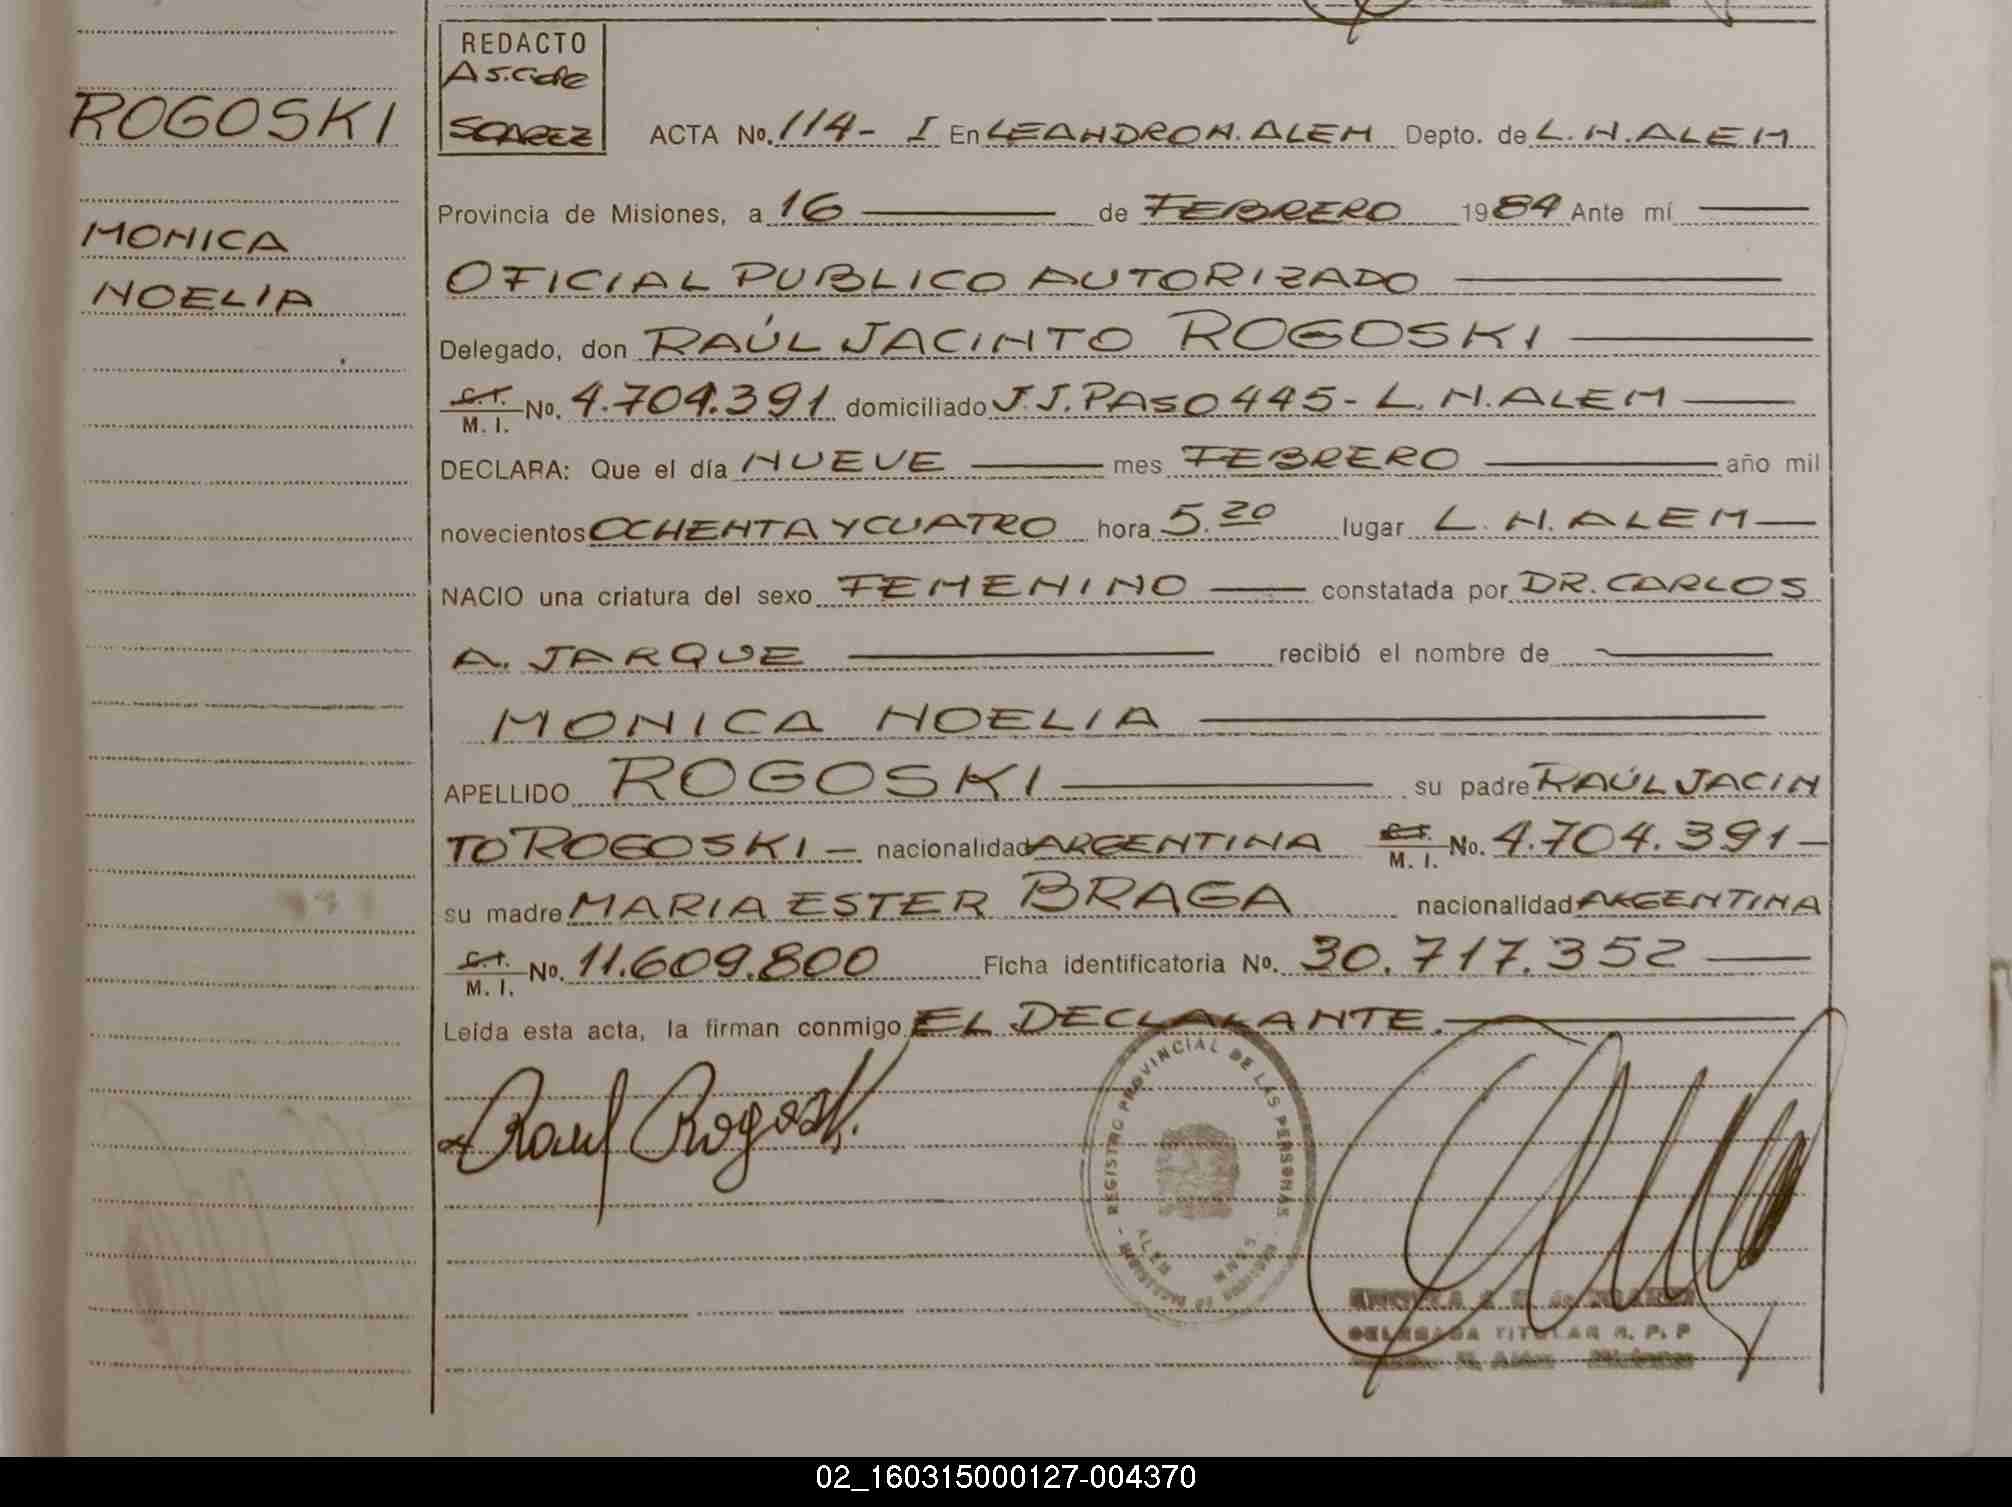 REDACTO
ROGOSKI
SOAREZ ACTA No. 114- I En LEANDRO N. ALEM Depto. de L. N. ALEM
Provincia de Misiones, a 16 de FEBRERO 1984 Ante mí
MONICA
OFICIAL PUBLICO AUTORIZADO
NOELIA
Delegado, don RAÚL JACINTO ROGOSKI
C.I. M. I. No. 4.704.391 domiciliado J.J. PASO 445- L. N. ALEM
DECLARA: Que el día NUEVE mes FEBRERO año mil
novecientos OCHENTA Y CUATRO hora 5.20 lugar L. N. ALEM
NACIO una criatura del sexo FEMENINO constatada por DR. CARLOS
A. JARQUE recibió el nombre de
MONICA NOELIA
APELLIDO ROGOSKI su padre RAÚL JACIN
TO ROGOSKI - nacionalidad ARGENTINA C.I. M. I. No. 4.704.391
su madre MARIA ESTER BRAGA nacionalidad ARGENTINA
C.I. M. I. No. 11.609.800 Ficha identificatoria No. 30.717.352
Leída esta acta, la firman conmigo EL DECLARANTE.
Raul Rogoski
REGISTRO PROVINCIAL DE LAS PERSONAS
ALEM MNES
DELEGADA TITULAR R. P. P
N. Alem Misiones
02_160315000127-004370